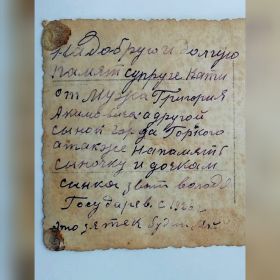 На добрую и долгую
память супруге Кати
от мужа Григория
Акимовича а другой
сынок города Горкого
а также на память
сыночку и дочкам
сынка звать володя
Государев. с 192